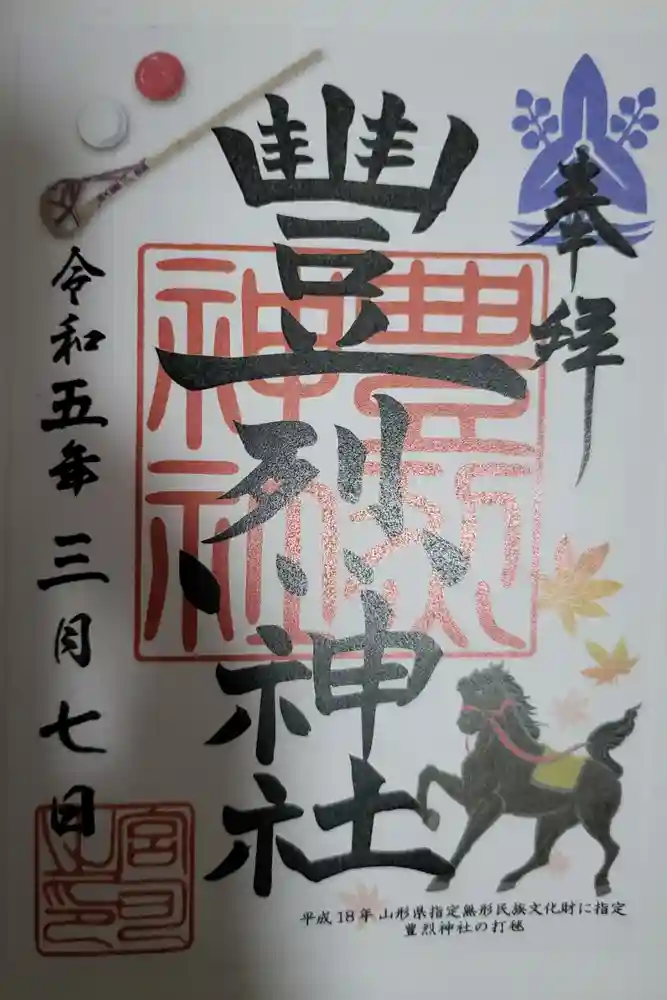 奉拝
豐烈神社
令和五年三月七日
豊烈神社
宮司之印
平成18年 山形県指定無形民族文化財に指定
豊烈神社の打毬